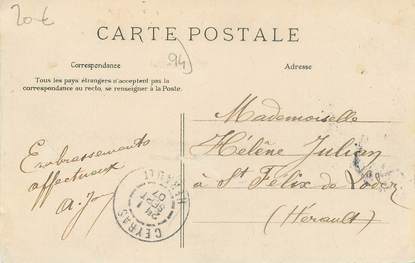 20€
CARTE POSTALE
94
Correspondance
Adresse
Tous les pays étrangers n'acceptent pas la
correspondance au recto, se renseigner à la Poste.
Mademoiselle
Hélène Julian
à St Félix de Lodez
(Hérault)
Embrassements
affectueux
A. J
CEYRAS
HERAULT
SEPT
07